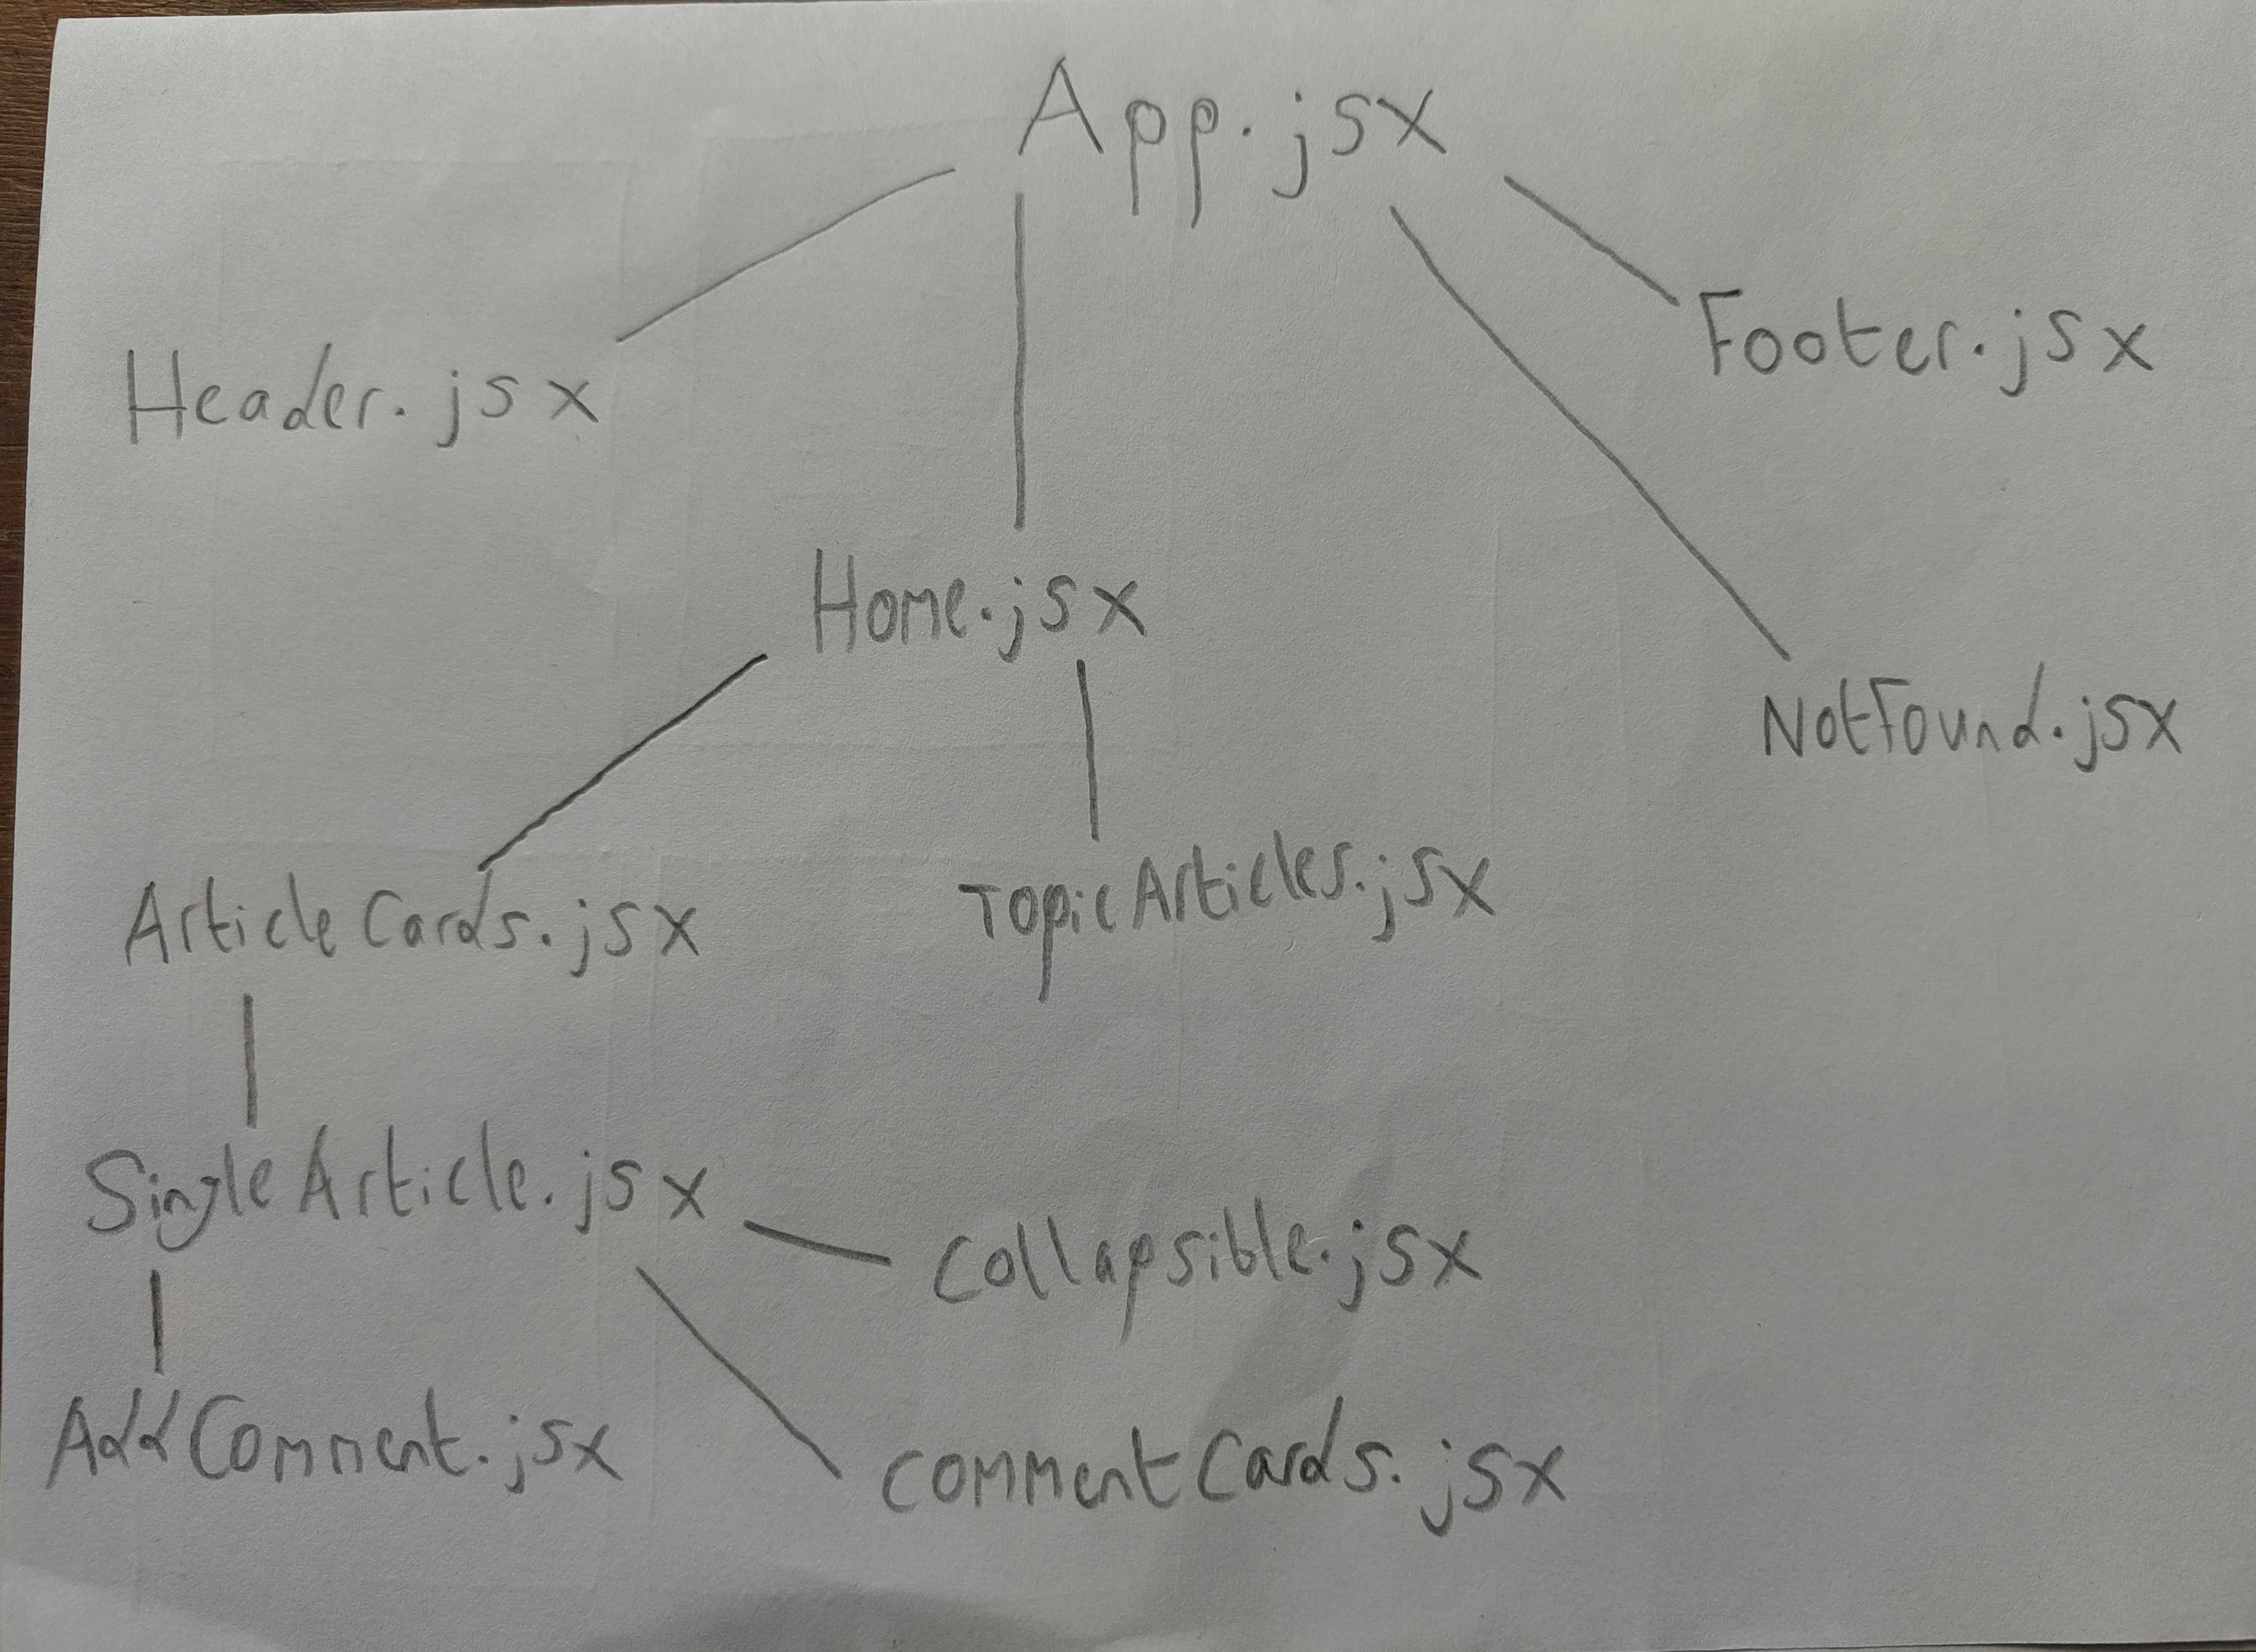 App.jsx
Header.jsx
Footer.jsx
Home.jsx
NotFound.jsx
ArticleCards.jsx
TopicArticles.jsx
SingleArticle.jsx
Collapsible.jsx
AddComment.jsx
CommentCards.jsx